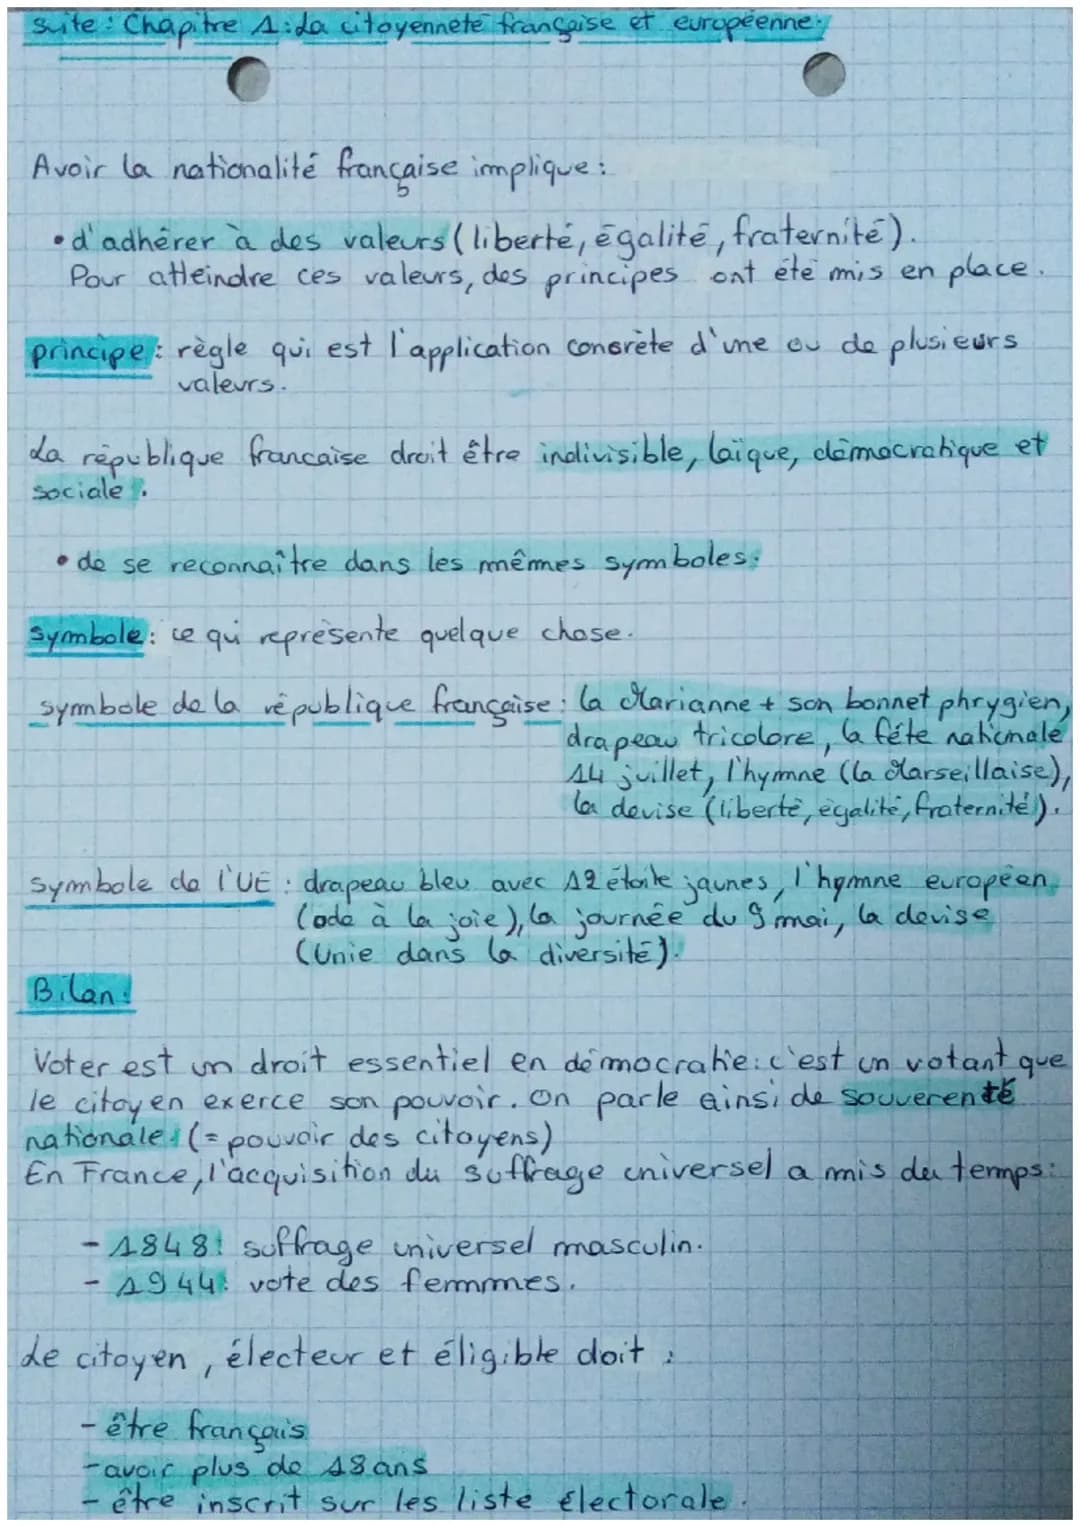 suite : Chapitre 1 : La citoyenneté française et européenne.
Avoir la nationalité française implique :
• d'adhérer à des valeurs (liberté, égalité, fraternité).
Pour atteindre ces valeurs, des principes ont été mis en place.
principe : règle qui est l'application concrète d'une ou de plusieurs
valeurs.
La république francaise droit être indivisible, laïque, démocratique et
sociale.
• de se reconnaître dans les mêmes symboles.
symbole : ce qui représente quelque chose.
symbole de la république française : la Marianne + son bonnet phrygien,
drapeau tricolore, la fête nationale
14 juillet, l'hymne (la Marseillaise),
la devise (liberté, égalité, fraternité).
symbole de l'UE : drapeau bleu avec 12 étoile jaunes, l'hymne européen
(ode à la joie), la journée du 9 mai, la devise
(Unie dans la diversité).
Bilan :
Voter est un droit essentiel en démocratie : c'est en votant que
le citoyen exerce son pouvoir. On parle ainsi de souverenté
nationale. (= pouvoir des citoyens)
En France, l'acquisition du suffrage universel a mis du temps :
- 1848 : suffrage universel masculin.
- 1944 : vote des femmes.
Le citoyen, électeur et éligible doit :
- être français
- avoir plus de 18 ans
- être inscrit sur les liste électorale.